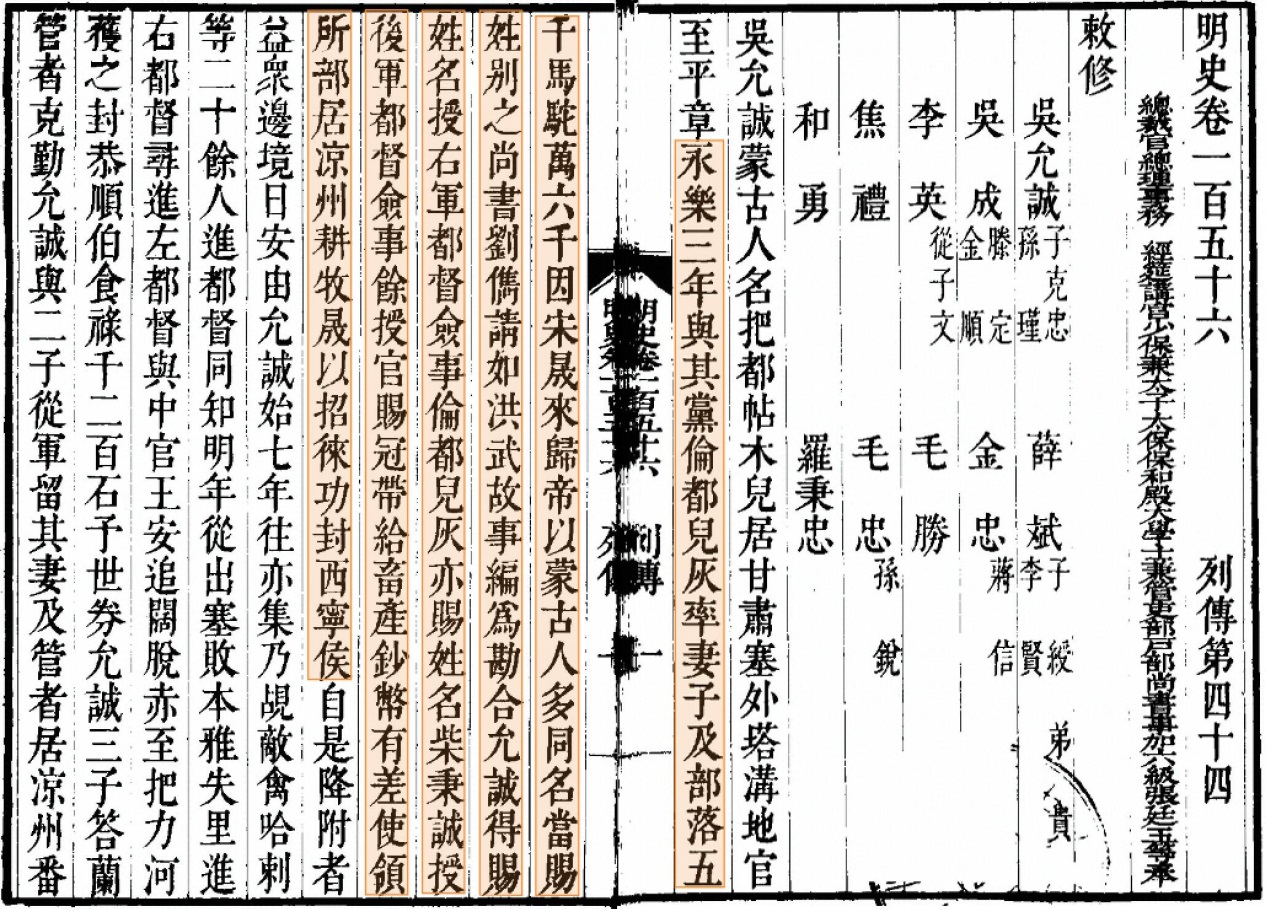 明史卷一百五十六 列傳第四十四
總裁官總理事務 經筵講官少保兼太子太保保和殿大學士兼管吏部戶部尚書事加六級張廷玉等奉
敕修
吳允誠 子克忠 孫瑾 薛斌 子綬 弟貴 李賢
吳成 滕定 金順 金忠 蔣信
李英 從子文 毛勝
焦禮 毛忠 孫銳
和勇 羅秉忠
吳允誠蒙古人名把都帖木兒居甘肅塞外塔溝地官
至平章永樂三年與其黨倫都兒灰率妻子及部落五
明史卷一百五十六 列傳 一
千馬駝萬六千因宋晟來歸帝以蒙古人多同名當賜
姓别之尚書劉儁請如洪武故事編爲勘合允誠得賜
姓名授右軍都督僉事倫都兒灰亦賜姓名柴秉誠授
後軍都督僉事餘授官賜冠帶給畜產鈔幣有差使領
所部居凉州耕牧晟以招徠功封西寧侯自是降附者
益衆邊境日安由允誠始七年往亦集乃覘敵禽哈剌
等二十餘人進都督同知明年從出塞敗本雅失里進
右都督尋進左都督與中官王安追闊脫赤至把力河
獲之封恭順伯食祿千二百石予世券允誠三子答蘭
管者克勤允誠與二子從軍留其妻及管者居凉州番